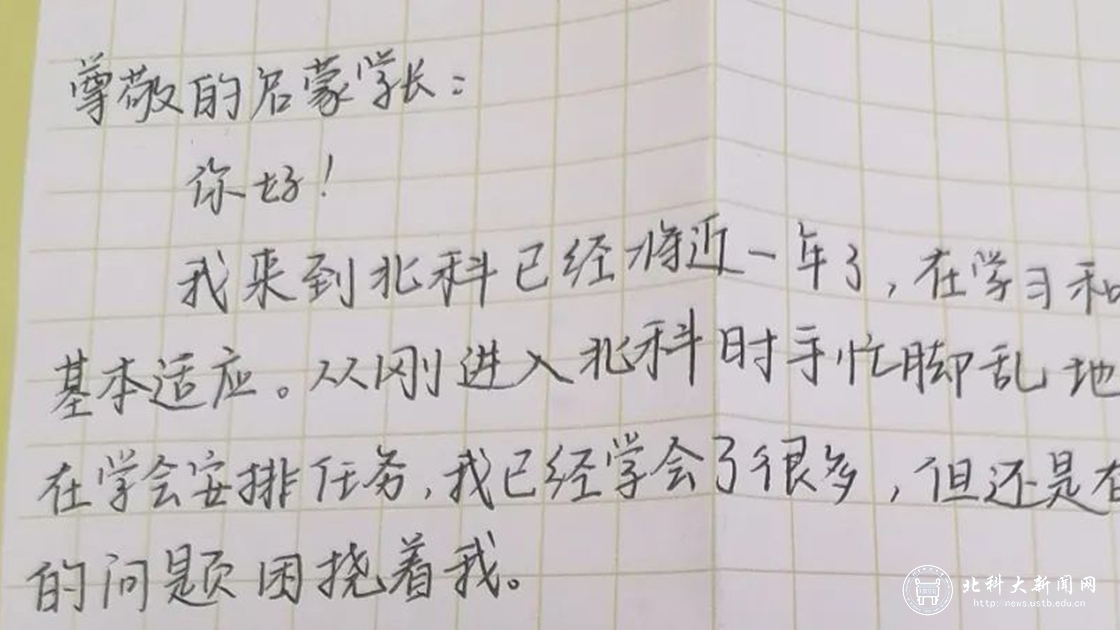 尊敬的启蒙学长：
你好！
我来到北科已经将近一年了，在学习和
基本适应。从刚进入北科时手忙脚乱地
在学会安排任务，我已经学会了很多，但还是有
的问题困挠着我。
北科大新闻网
http://news.ustb.edu.cn